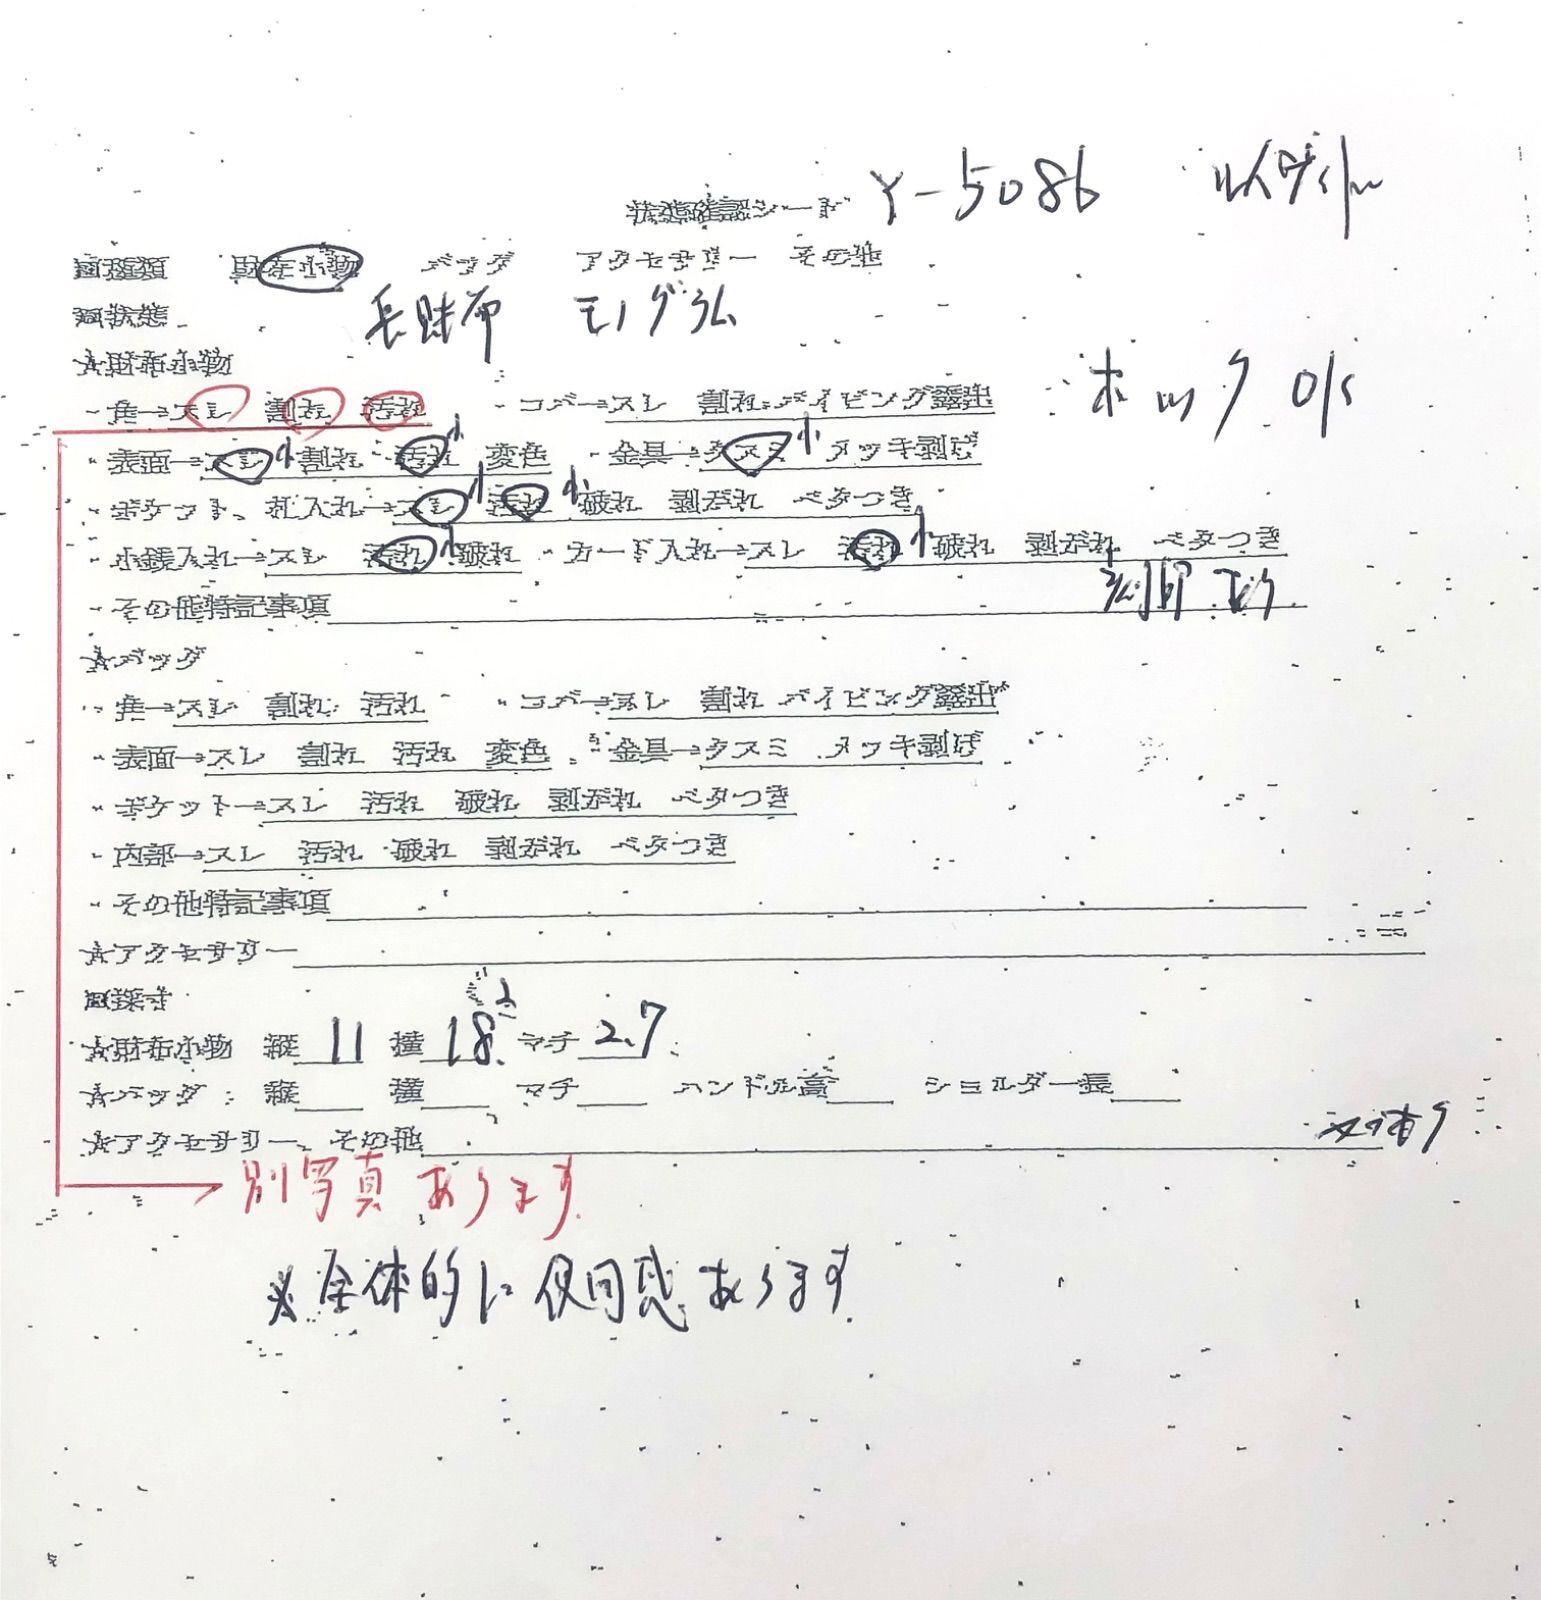 状態確認シート Y-5086 ルイヴィトン
■種類 財布小物 バッグ アクセサリー その他
■状態 長財布 モノグラム
★財布小物
・角→スレ 割れ 汚れ ・コバ→スレ 割れ パイピング露出 ホック O/S
・表面→スレ小 割れ 汚れ小 変色 ・金具→クスミ小 メッキ剥げ
・ポケット、札入れ→スレ小 汚れ小 破れ 剥がれ ベタつき
・小銭入れ→スレ 汚れ小 破れ ・カード入れ→スレ 汚れ小 破れ 剥がれ ベタつき
・その他特記事項
★バッグ
・角→スレ 割れ 汚れ ・コバ→スレ 割れ パイピング露出
・表面→スレ 割れ 汚れ 変色 ・金具→クスミ メッキ剥げ
・ポケット→スレ 汚れ 破れ 剥がれ ベタつき
・内部→スレ 汚れ 破れ 剥がれ ベタつき
・その他特記事項
★アクセサリー
■採寸
★財布小物 縦 11 横 18. マチ 2.7
★バッグ 縦 横 マチ ハンドル高 ショルダー長
★アクセサリー、その他
別写真あります
※全体的に使用感あります.